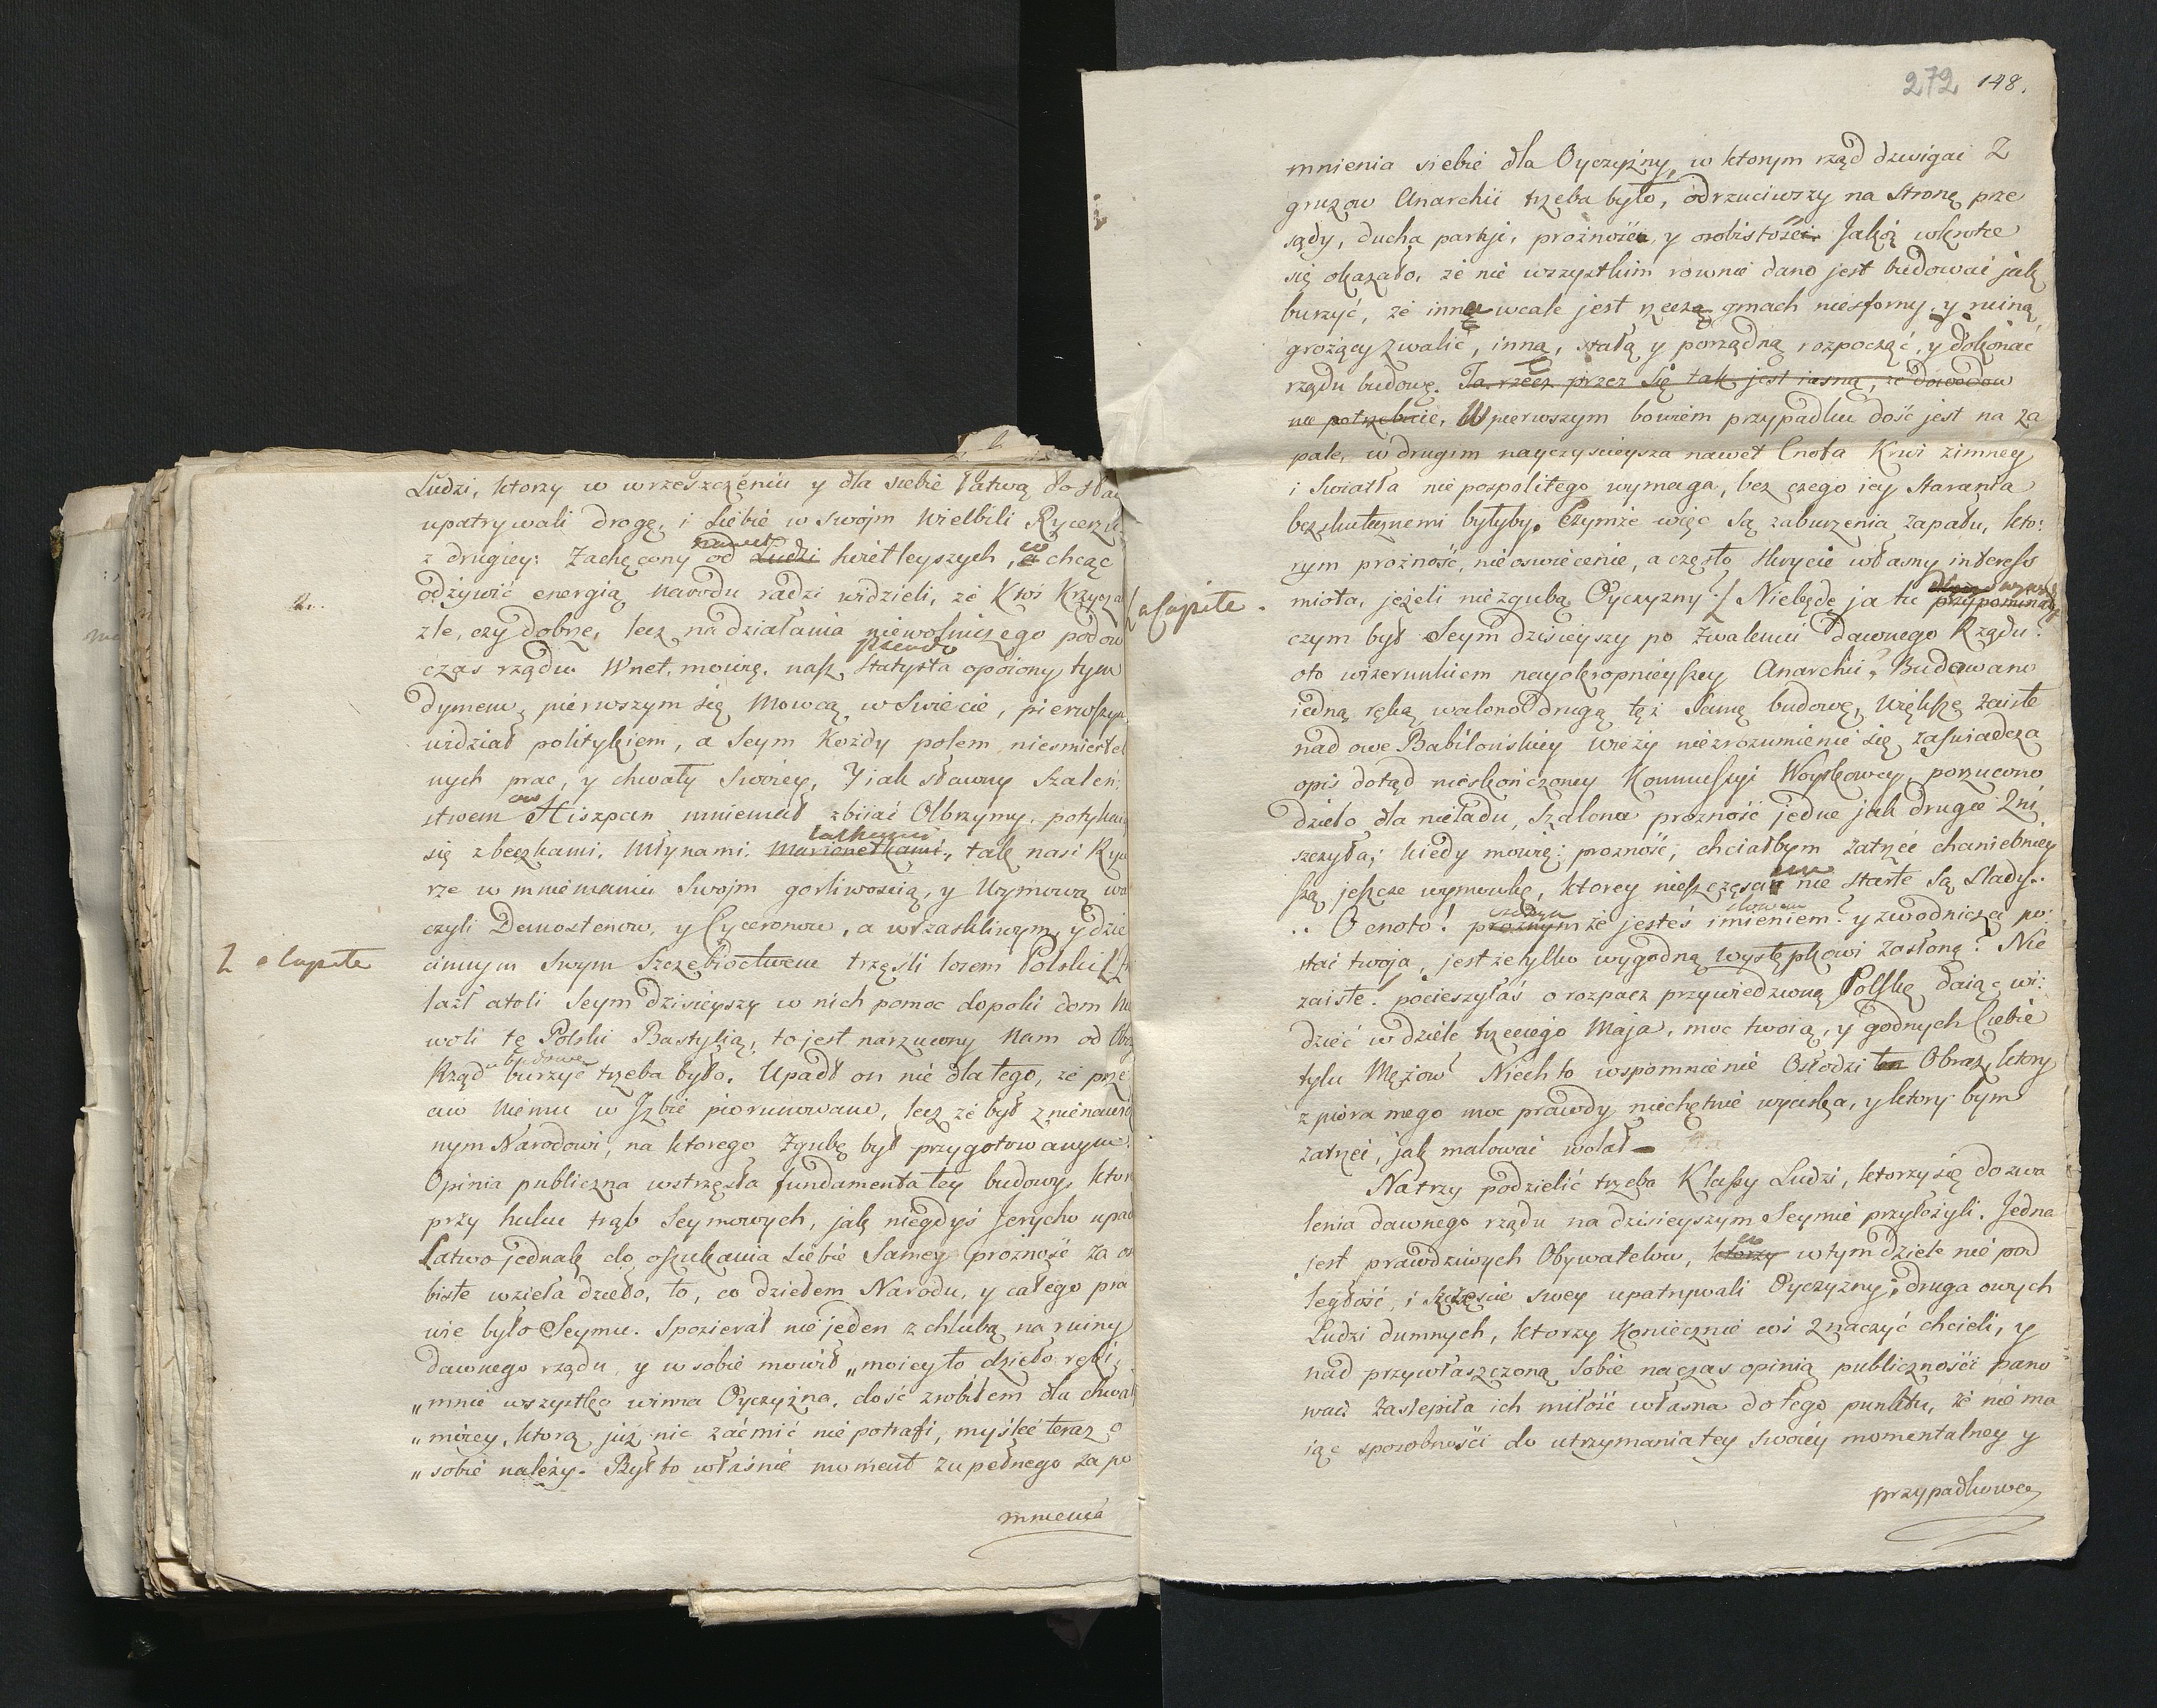 Ludzi, ktorzy w wrzeszczeniu y dla siebie łatwą do sła
upatrywali drogę, i siebie w swojm wielbili Rycerzu
z drugiey: Zachęcony nawet od Ludzi swietleyszych, co chcąc
odżywić energią narodu radzi widzieli, że Ktoś Krzycza
a Capite
źle, czy dobrze, lecz na działania niewolniczego podow
czas rządu. Wnet, mowię, nasz pseudo Statysta opoiony tym
dymem, pierwszym się Mowcą w Swiecie, pierwszym
widział politykiem, a Seym Kożdy polem niesmiertel
nych prac, y chwały swoiey. Jak sławny Szaleń:
stwem ow Hiszpan mniemał zbiiać Olbrzymy, potykaiąc
się z beczkami, Młynami, Marionetkami, tak nasi Ryce
rze w mniemaniu Swojm gorliwością, y Wymową
czyli Demostenow, y Cyceronow, a wrzaskliwym, y dzie
a Capite
cinnym swym Szczebioctwem trzęśli losem Polski
lazł atoli Seym dzisieyszy w nich pomoc dopoki dom Nie
woli tę Polski Bastylią, to jest narzucony Nam od Obcych
Rząd burzyć trzeba było. Upadł on nie dla tego, że prze
ciw Niemu w Jzbie piorunowano, lecz że był znienawidzo
nym Narodowi, na ktorego zgubę był przygotowanym.
Opinia publiczna wstrzęsła fundamenta tey budowy, ktor
przy huku trąb Seymowych, jak niegdyś Jerycho upad
Łatwo jednak do oszukania siebie samey prożność za oso
biste wzieła dzieło, to, co dziełem Narodu, y całego pra
wie było Seymu. Spozierał nie jeden z chlubą na ruiny
dawnego rządu, y w sobie mowił „moiey to dzieło ręki,
„mnie wszystko winna Oyczyzna, dość zrobiłem dla chwały
„moiey, ktorą już nic zaćmić nie potrafi, myśleć teraz o
„sobie należy. Był to właśnie moment zupełnego zapo
mnienia
272 148.
mnienia siebie dla Oyczyzny, w ktorym rząd dzwigać z
gruzow Anarchii trzeba było, odrzuciwszy na stronę prze
sądy, ducha partji, prożność, y osobistość. Jakoż wkrotce
się okazało, że nie wszystkim rownie dano jest budować jak
burzyć, że inną wcale jest rzeczą gmach niesforny, y ruiną
grożący zwalić, inną, stałą y porządną rozpocząć, y dokonać
rządu budowę. Ta rzecz przez się tak jest iasną, że dowodow
nie potrzebuie. W pierwszym bowiem przypadku dość jest na za
pale, w drugim nayczyscieysza nawet Cnota Krwi zimney
i Swiatła niepospolitego wymaga, bez czego iey Starania
bezskutecznemi byłyby. Czymże więc są zaburzenia zapału, kto:
rym prożność, nieoswiecenie, a często skrycie własny interess
miota, jeżeli nie zgubą Oyczyzny? Nie będę ja tu przypominać
czym był Seym dzisieyszy po zwaleniu dawnego Rządu:
oto wizerunkiem nayokropnieyszey Anarchii, Budowano
iedną ręką, walono drugą tęż samę budowę, większe zaiste
nad owe Babilońskiey Wieży niezrozumienie się zaswiadcza
opis dotąd nieskończoney Kommissyi Woyskowey, porzucono
dzieło dla nieładu, szalona prozność jedne jak drugie zni
szczyła; kiedy mowię: prozność, chciałbym zatrzeć chaniebniey
szą jeszcze wymowkę, ktorey nieszczęsciem nie starte są slady..
.. O cnoto! prożnym że jesteś imieniem? y zwodnicza po:
stać twoja, jest że tylko wygodną występkowi zasłoną? Nie
zaiste! pocieszyłaś o rozpacz przywiedzioną Polskę daiąc wi:
dzieć w dziele trzeciego Maja, moc twoią, y godnych Ciebie
tylu Mężow! Niech to wspomnienie Osłodzi ten Obraz, ktory
z piora mego moc prawdy niechętnie wyciska, y ktory bym
zatrzeć, jak malować wolał –
Na trzy podzielić trzeba Klassy Ludzi, ktorzy się do zwa
lenia dawnego rządu na dzisieyszym Seymie przyłożyli. Jedna
jest prawdziwych Obywatelow, ktorzy co w tym dziele nie pod
ległość, i szczęscie swey upatrywali Oyczyzny: druga owych
Ludzi dumnych, ktorzy Koniecznie coś znaczyć chcieli, y
nad przywłaszczoną sobie na czas opinią publicznosći pano
wać. Zaslepiła ich miłość własna do tego punktu, że nie ma
iąc sposobnosći do utrzymania tey swoiey momentalney y
przypadkowey